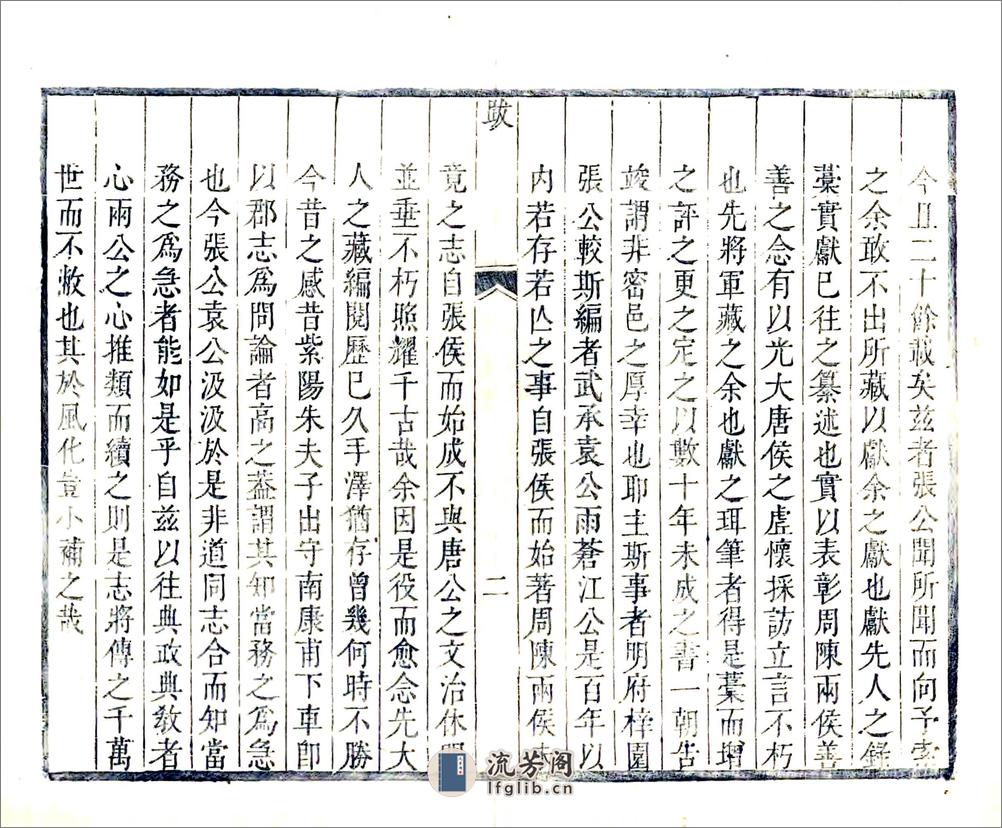 今且二十餘載矣茲者張公聞所聞而向予索
之余敢不出所藏以獻余之獻也獻先人之錄
藁實獻已往之纂述也實以表彰周陳兩侯善
善之念有以光大唐侯之虛懷採訪立言不朽
也先將軍藏之余也獻之珥筆者得是藁而增
之評之更之定之以數十年未成之書一朝告
竣謂非密邑之厚幸也耶主斯事者明府梓園
張公較斯編者武承袁公雨蒼江公是百年以
內若存若亾之事自張侯而始著周陳兩侯未
跋
二
竟之志自張侯而始成不與唐公之文治休明
並垂不朽照耀千古哉余因是役而愈念先大
人之藏編閱歷已久手澤猶存曾幾何時不勝
今昔之感昔紫陽朱夫子出守南康甫下車卽
以郡志爲問論者高之葢謂其知當務之爲急
也今張公袁公汲汲於是非道同志合而知當
務之爲急者能如是乎自茲以往典政典敎者
心兩公之心推類而續之則是志將傳之千萬
世而不敝也其於風化豈小補之哉
流芳阁
lfglib.cn